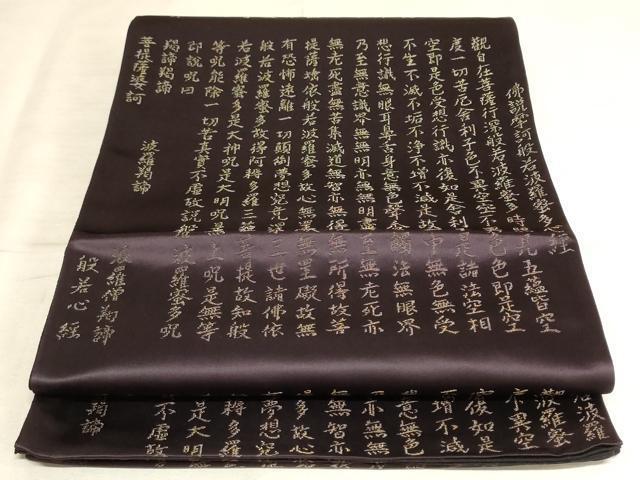 佛説摩訶般若波羅蜜多心經
觀自在菩薩行深般若波羅蜜多時照見五蘊皆空
度一切苦厄舍利子色不異空空不異色色即是空
空即是色受想行識亦復如是舍利子是諸法空相
不生不滅不垢不淨不增不減是故空中無色無受
想行識無眼耳鼻舌身意無色聲香味觸法無眼界
乃至無意識界無無明亦無無明盡乃至無老死亦
無老死盡無苦集滅道無智亦無得以無所得故菩
提薩埵依般若波羅蜜多故心無罣礙無罣礙故無
有恐怖遠離一切顛倒夢想究竟涅槃三世諸佛依
般若波羅蜜多故得阿耨多羅三藐三菩提故知般
若波羅蜜多是大神呪是大明呪是無上呪是無等
等呪能除一切苦真實不虛故説般若波羅蜜多呪
即説呪曰
羯諦羯諦 波羅羯諦 波羅僧羯諦
菩提薩婆訶 般若心經
若波羅
波羅蜜
不異空
復如是
增不減
意無色
亦無無
無智亦
多故心
夢想究
耨多羅
是大明
不虛故
羯諦